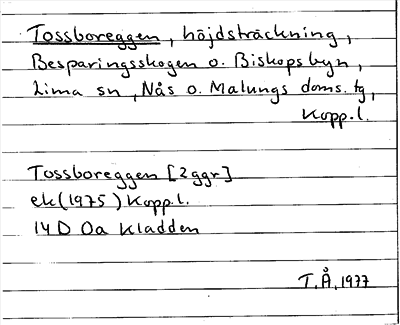 Tossboreggen, höjdsträckning,
Besparingsskogen o. Biskopsbyn,
Lima sn, Nås o. Malungs doms. tg,
Kopp.l.
Tossboreggen [2ggr]
ek (1975) Kopp.l.
14D 0a Kladden
T.Å. 1977